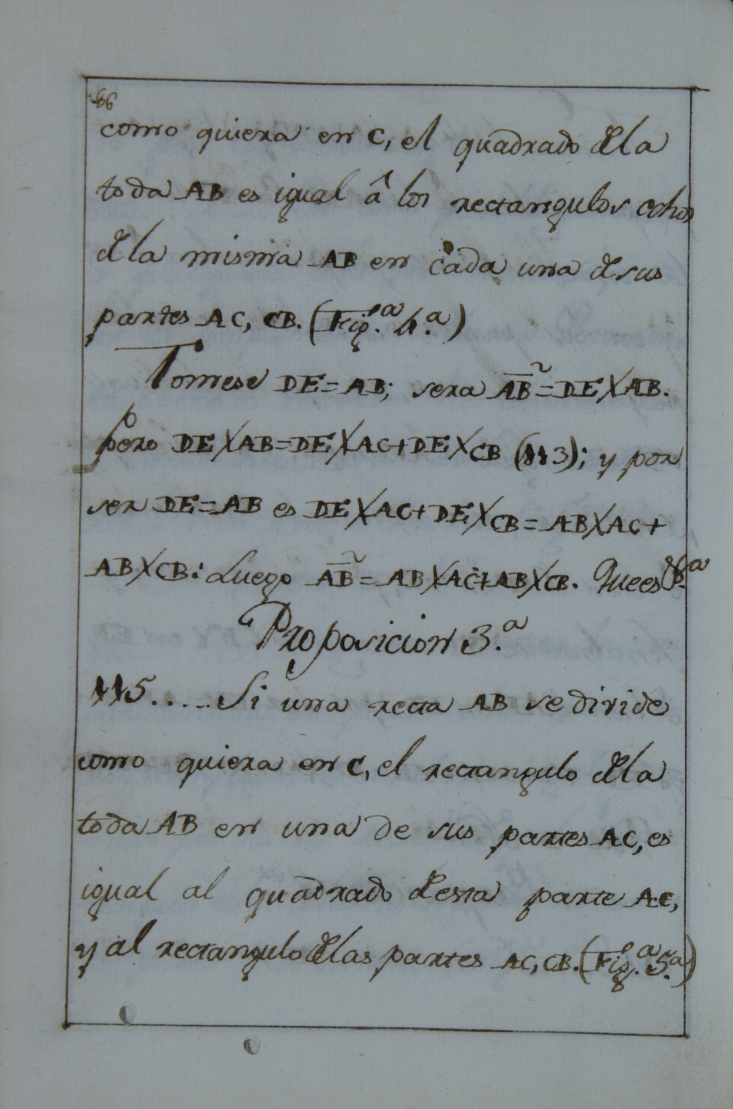 46
como quiera en C, el quadrado dla
toda AB es igual â los rectangulos chos
dla misma AB en cada una dsus
partes AC, CB. (Fig.ª 4.ª)
Tomese DE=AB; sera AB²=DE×AB.
pero DE×AB=DE×AC+DE×CB (113); y por
ser DE=AB es DE×AC+DE×CB=AB×AC+
AB×CB: Luego AB²=AB×AC+AB×CB. Quees &.ª
Proposicion 3.ª
115.....Si una recta AB se divide
como quiera en C, el rectangulo dla
toda AB en una de sus partes AC, es
igual al quadrado desta parte AC,
y al rectangulo dlas partes AC, CB. (Fig.ª 5.ª)